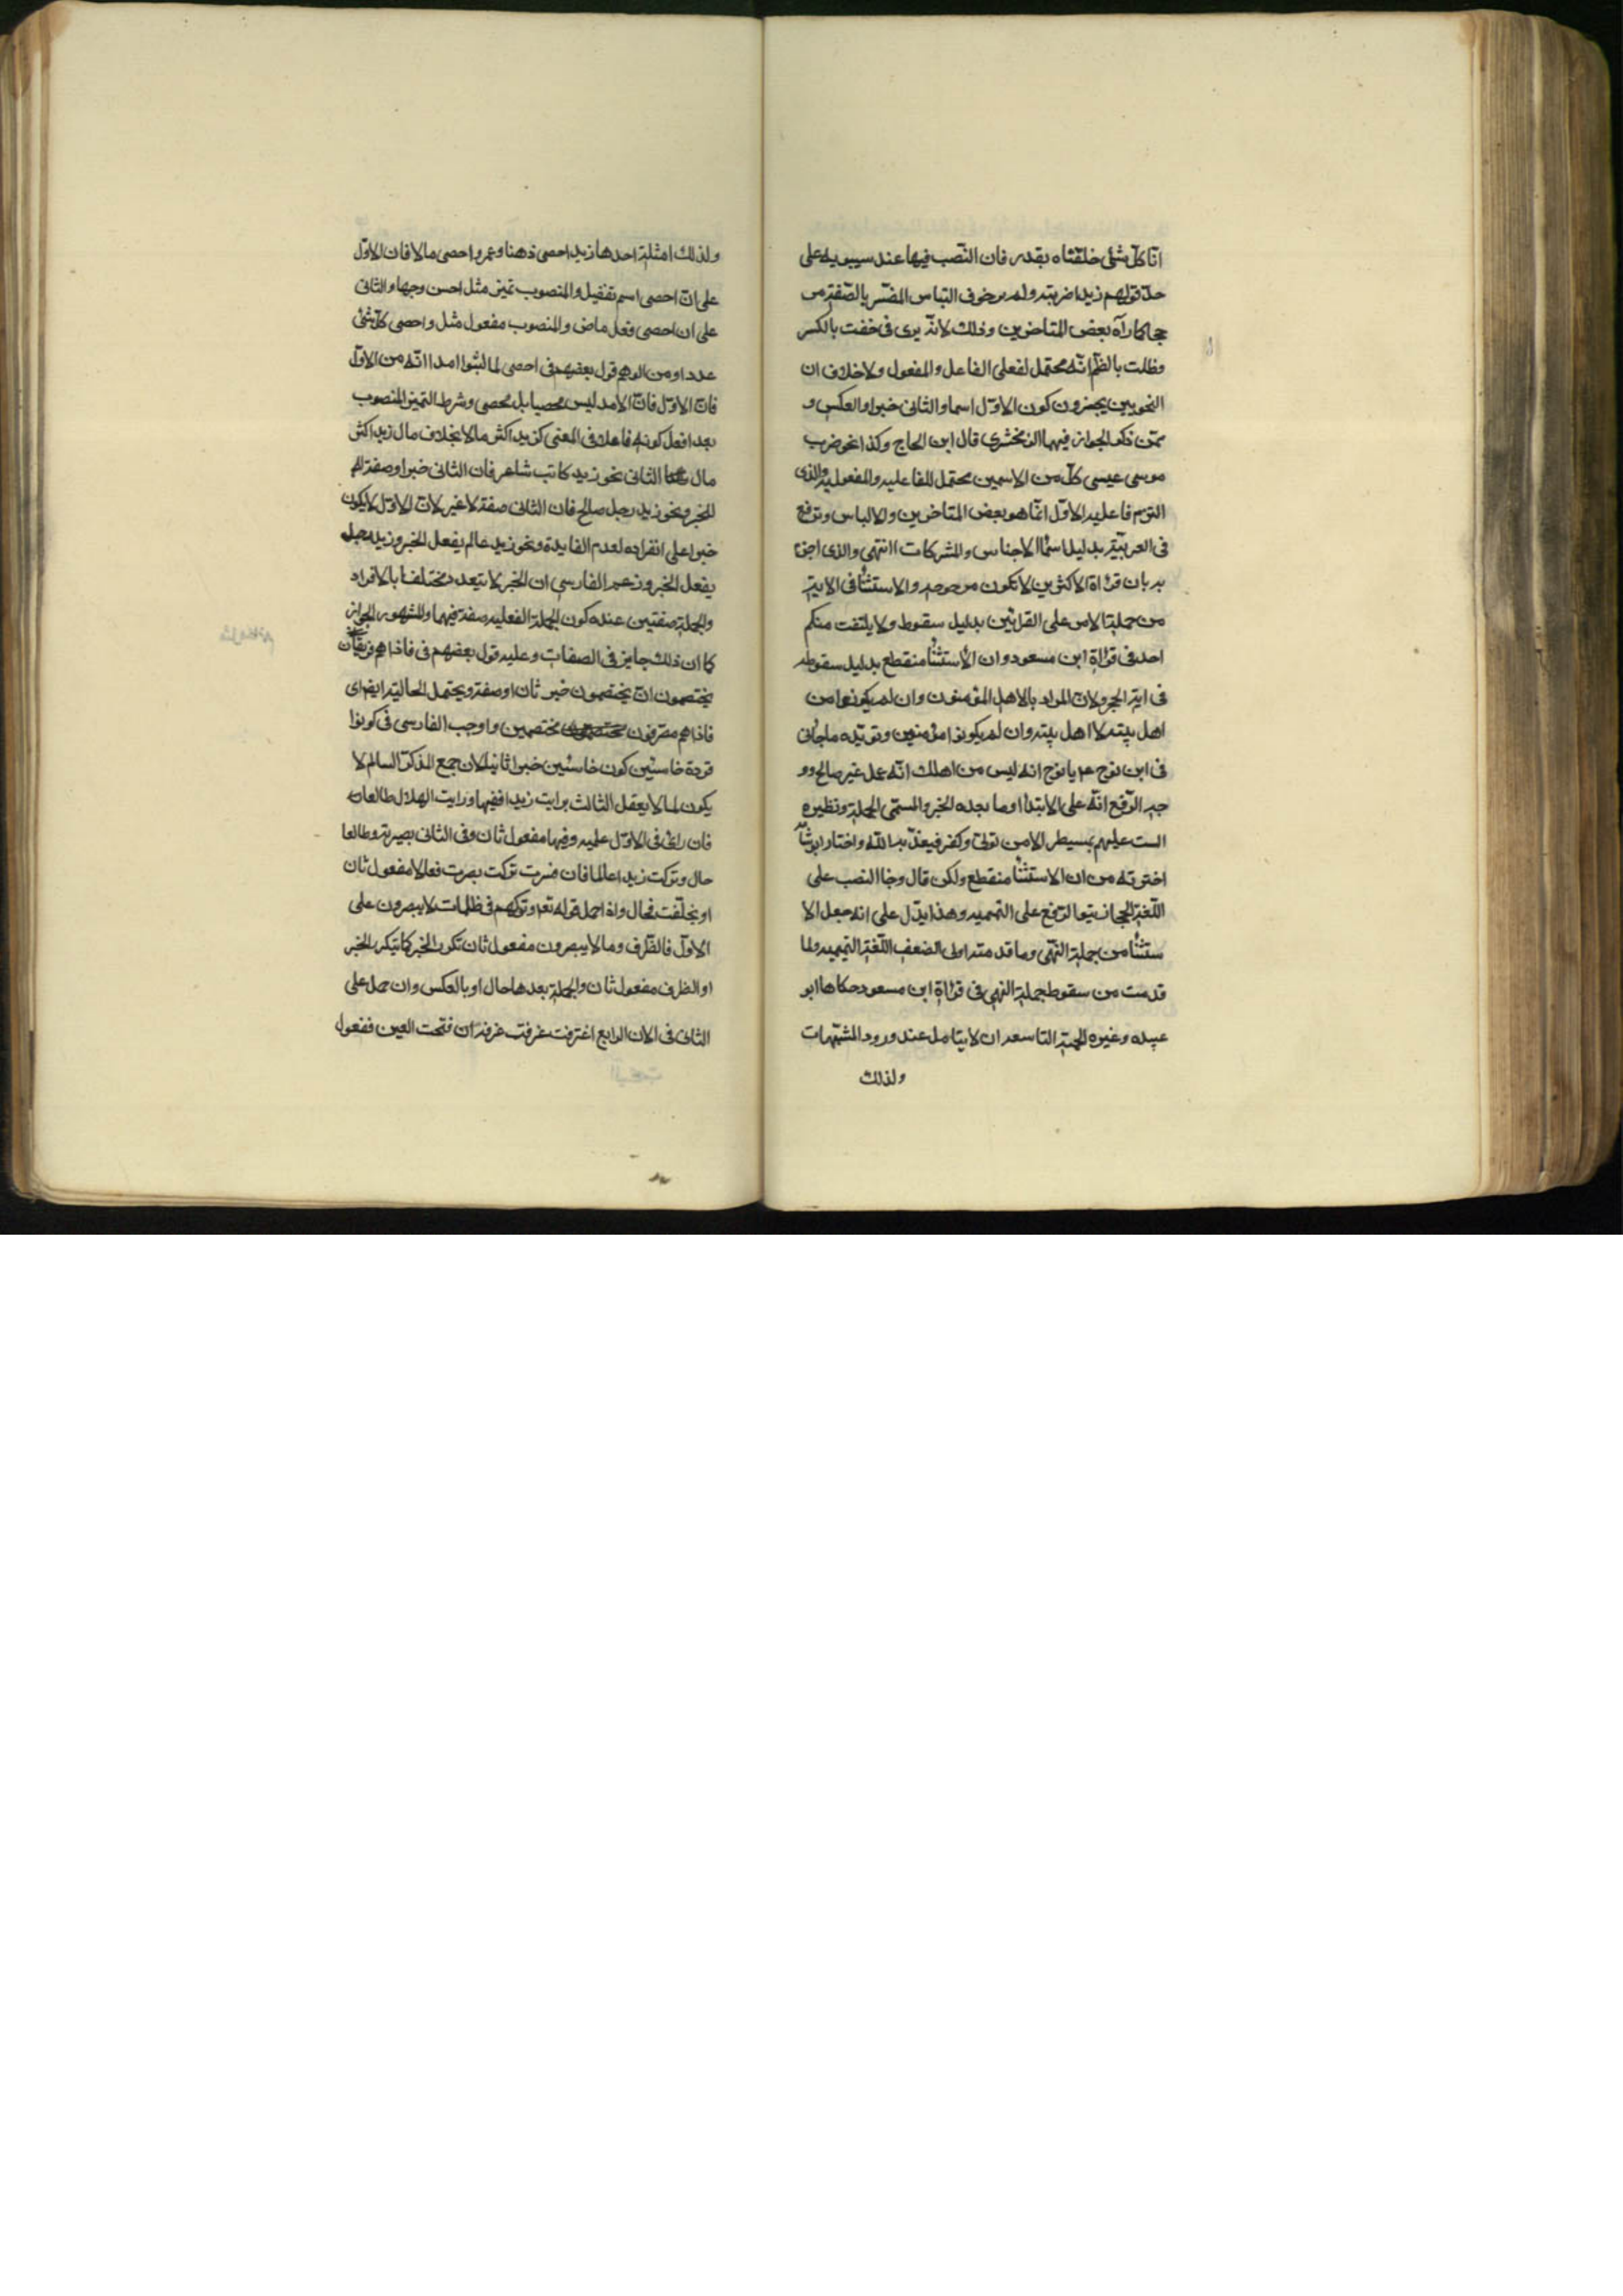 انّا كلّ شئ خلقناه بقدر فان النّصب فيها عند سيبويه على
حدّ قولهم زيدا ضربته ولم ير خوف التباس المفسّر بالصّفة مر
جحا كما رآه بعض المتاخرين وذلك لانّه يرى فى خفت بالكسر
وطلت بالضّم انّه محتمل لفعلى الفاعل والمفعول ولا خلاف ان
النحويين يجيزون كون الاوّل اسما والثانى خبرا والعكس و
ممّن ذكر الجواز فيهما الزمخشرى قال ابن الحاج وكذا نحو ضرب
موسى عيسى كلّ من الاسمين محتمل للفاعليه والمفعوليه والذى
التزم فاعليه الاوّل انّما هو بعض المتاخرين والالباس وتوقع
فى العربيّة بدليل اسمآ الاجناس والمشركات انتهى والذى اجزم
به بان قرٰاة الاكثرين لا تكون مرجوحه والاستثنٓا فى الايه
من جملة الامر على القرائتين بدليل سقوط ولا يلتفت منكم
احد فى قرٰاة ابن مسعود وان الاستثنٓا منقطع بدليل سقوطه
فى اية الحجر ولانّ المراد بالاهل المؤمنون وان لم يكونوا من
اهل بيته لا اهل بيته وان لم يكونوا مؤمنين وتويّده ما جآ فى
فى ابن نوح عم يا نوح انه ليس من اهلك انّه عمل غير صالح وو
جه الرّفع انّه على الابتدآ وما بعده الخبر والمستثنى الجملة ونظيره
لست عليهم بمسيطر الا من تولّى وكفر فيعذّبه اللّه واختار ابو شامه
اخترته من ان الاستثنٓا منقطع ولكن قال وجآ النصب على
اللّغة الحجازيّة والرّفع على التميميه وهذا يدّل على انه جعل الا
ستثنٓا من جملة النّهى وما قدمته اولى لضعف اللّغة التميميه ولما
قدمت من سقوط جملة النهى فى قرٰاة ابن مسعود حكاها ابو
عبيده وغيره الجهة التاسعه ان لا يتامل عند ورود المشتبهات
ولذلك
ولذلك امثلة احدها زيد احصى ذهنا وعمرو احصى مالا فان الاوّل
على انّ احصى اسم تفضيل والمنصوب تميز مثل احسن وجها والثانى
على ان احصى فعل ماض والمنصوب مفعول مثل واحصى كلّ شئ
عددا ومن الوهم قول بعضهم فى احصى لما لبثوا امدا انّه من الاوّل
فانّ الاوّل فانّ الامد ليس محصيا بل محصى وشرط التميز المنصوب
بعد افعل كونه فاعلا فى المعنى كزيد اكثر مالا بخلاف مال زيد اكثر
مال الثانى نحو زيد كاتب شاعر فان الثانى خبر او صفة له
للخبر ونحو زيد رجل صالح فان الثانى صفة لا غير لانّ الاوّل لا يكون
خبرا على انفراده لعدم الفايدة ونحو زيد عالم يفعل الخبر وزيد رجل
يفعل الخبر وزعم الفارسى ان الخبر لا يتعدد مختلفا بالافراد
والجملة صفتين عنده كون الجملة الفعليه صفة فيهما والمشهور الجواز
كما ان ذلك جايز فى الصفات وعليه قول بعضهم فى فاذا هم فريقان
يختصمون انّ يختصمون خبر ثان او صفة ويحتمل الحاليّة ايضا اى
فاذا هم مفترقون مختصمين واوجب الفارسى فى كونوا
قردة خاسئين كون خاسئين خبرا ثانيا لان جمع المذكّر السالم لا
يكون لما لا يعقل الثالث رايت زيدا فقيها ورايت الهلال طالعا
فان راى فى الاوّل علميه وفقيها مفعول ثان وفى الثانى بصريّة وطالعا
حال وتركت زيدا عالما فان فسرت تركت بصيرت فعالما مفعول ثان
او بخلّفت فحال واذا حمل قوله تعه وتركهم فى ظلمات لا يبصرون على
الاوّل فالظّرف وما لا يبصرون مفعول ثان تكرر الخبر كما يتكرر الخبر
او الظرف مفعول ثان والجملة بعدها حال او بالعكس وان حمل على
الثانى فى الان الرابع اغترفت غرفة غرفة ان فتحت الغين ففعول